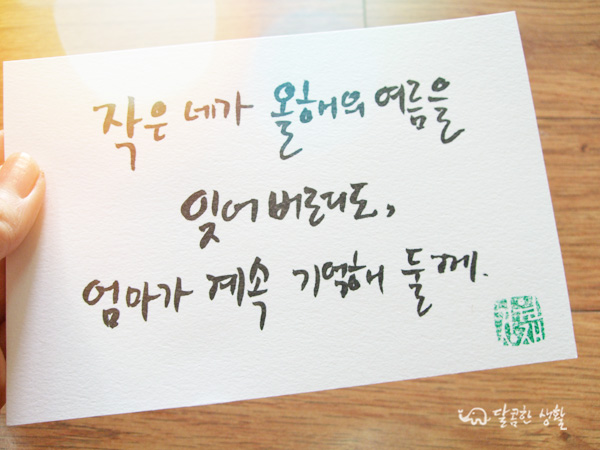 작은 네가 올해의 여름을
잊어 버려도,
엄마가 계속 기억해 둘께.
달콤한 생활